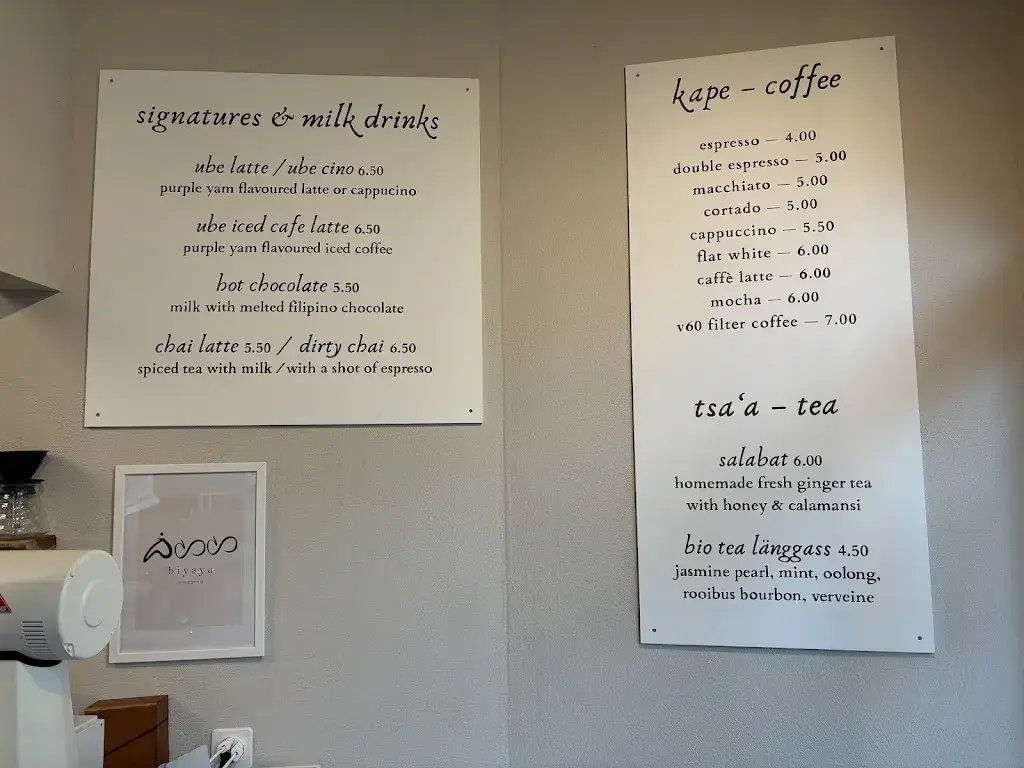 signatures & milk drinks
ube latte / ube cino 6.50
purple yam flavoured latte or cappucino
ube iced cafe latte 6.50
purple yam flavoured iced coffee
hot chocolate 5.50
milk with melted filipino chocolate
chai latte 5.50 / dirty chai 6.50
spiced tea with milk / with a shot of espresso
kape – coffee
espresso — 4.00
double espresso — 5.00
macchiato — 5.00
cortado — 5.00
cappuccino — 5.50
flat white — 6.00
caffè latte — 6.00
mocha — 6.00
v60 filter coffee — 7.00
tsa‘a – tea
salabat 6.00
homemade fresh ginger tea
with honey & calamansi
bio tea länggass 4.50
jasmine pearl, mint, oolong,
rooibus bourbon, verveine
biyaya